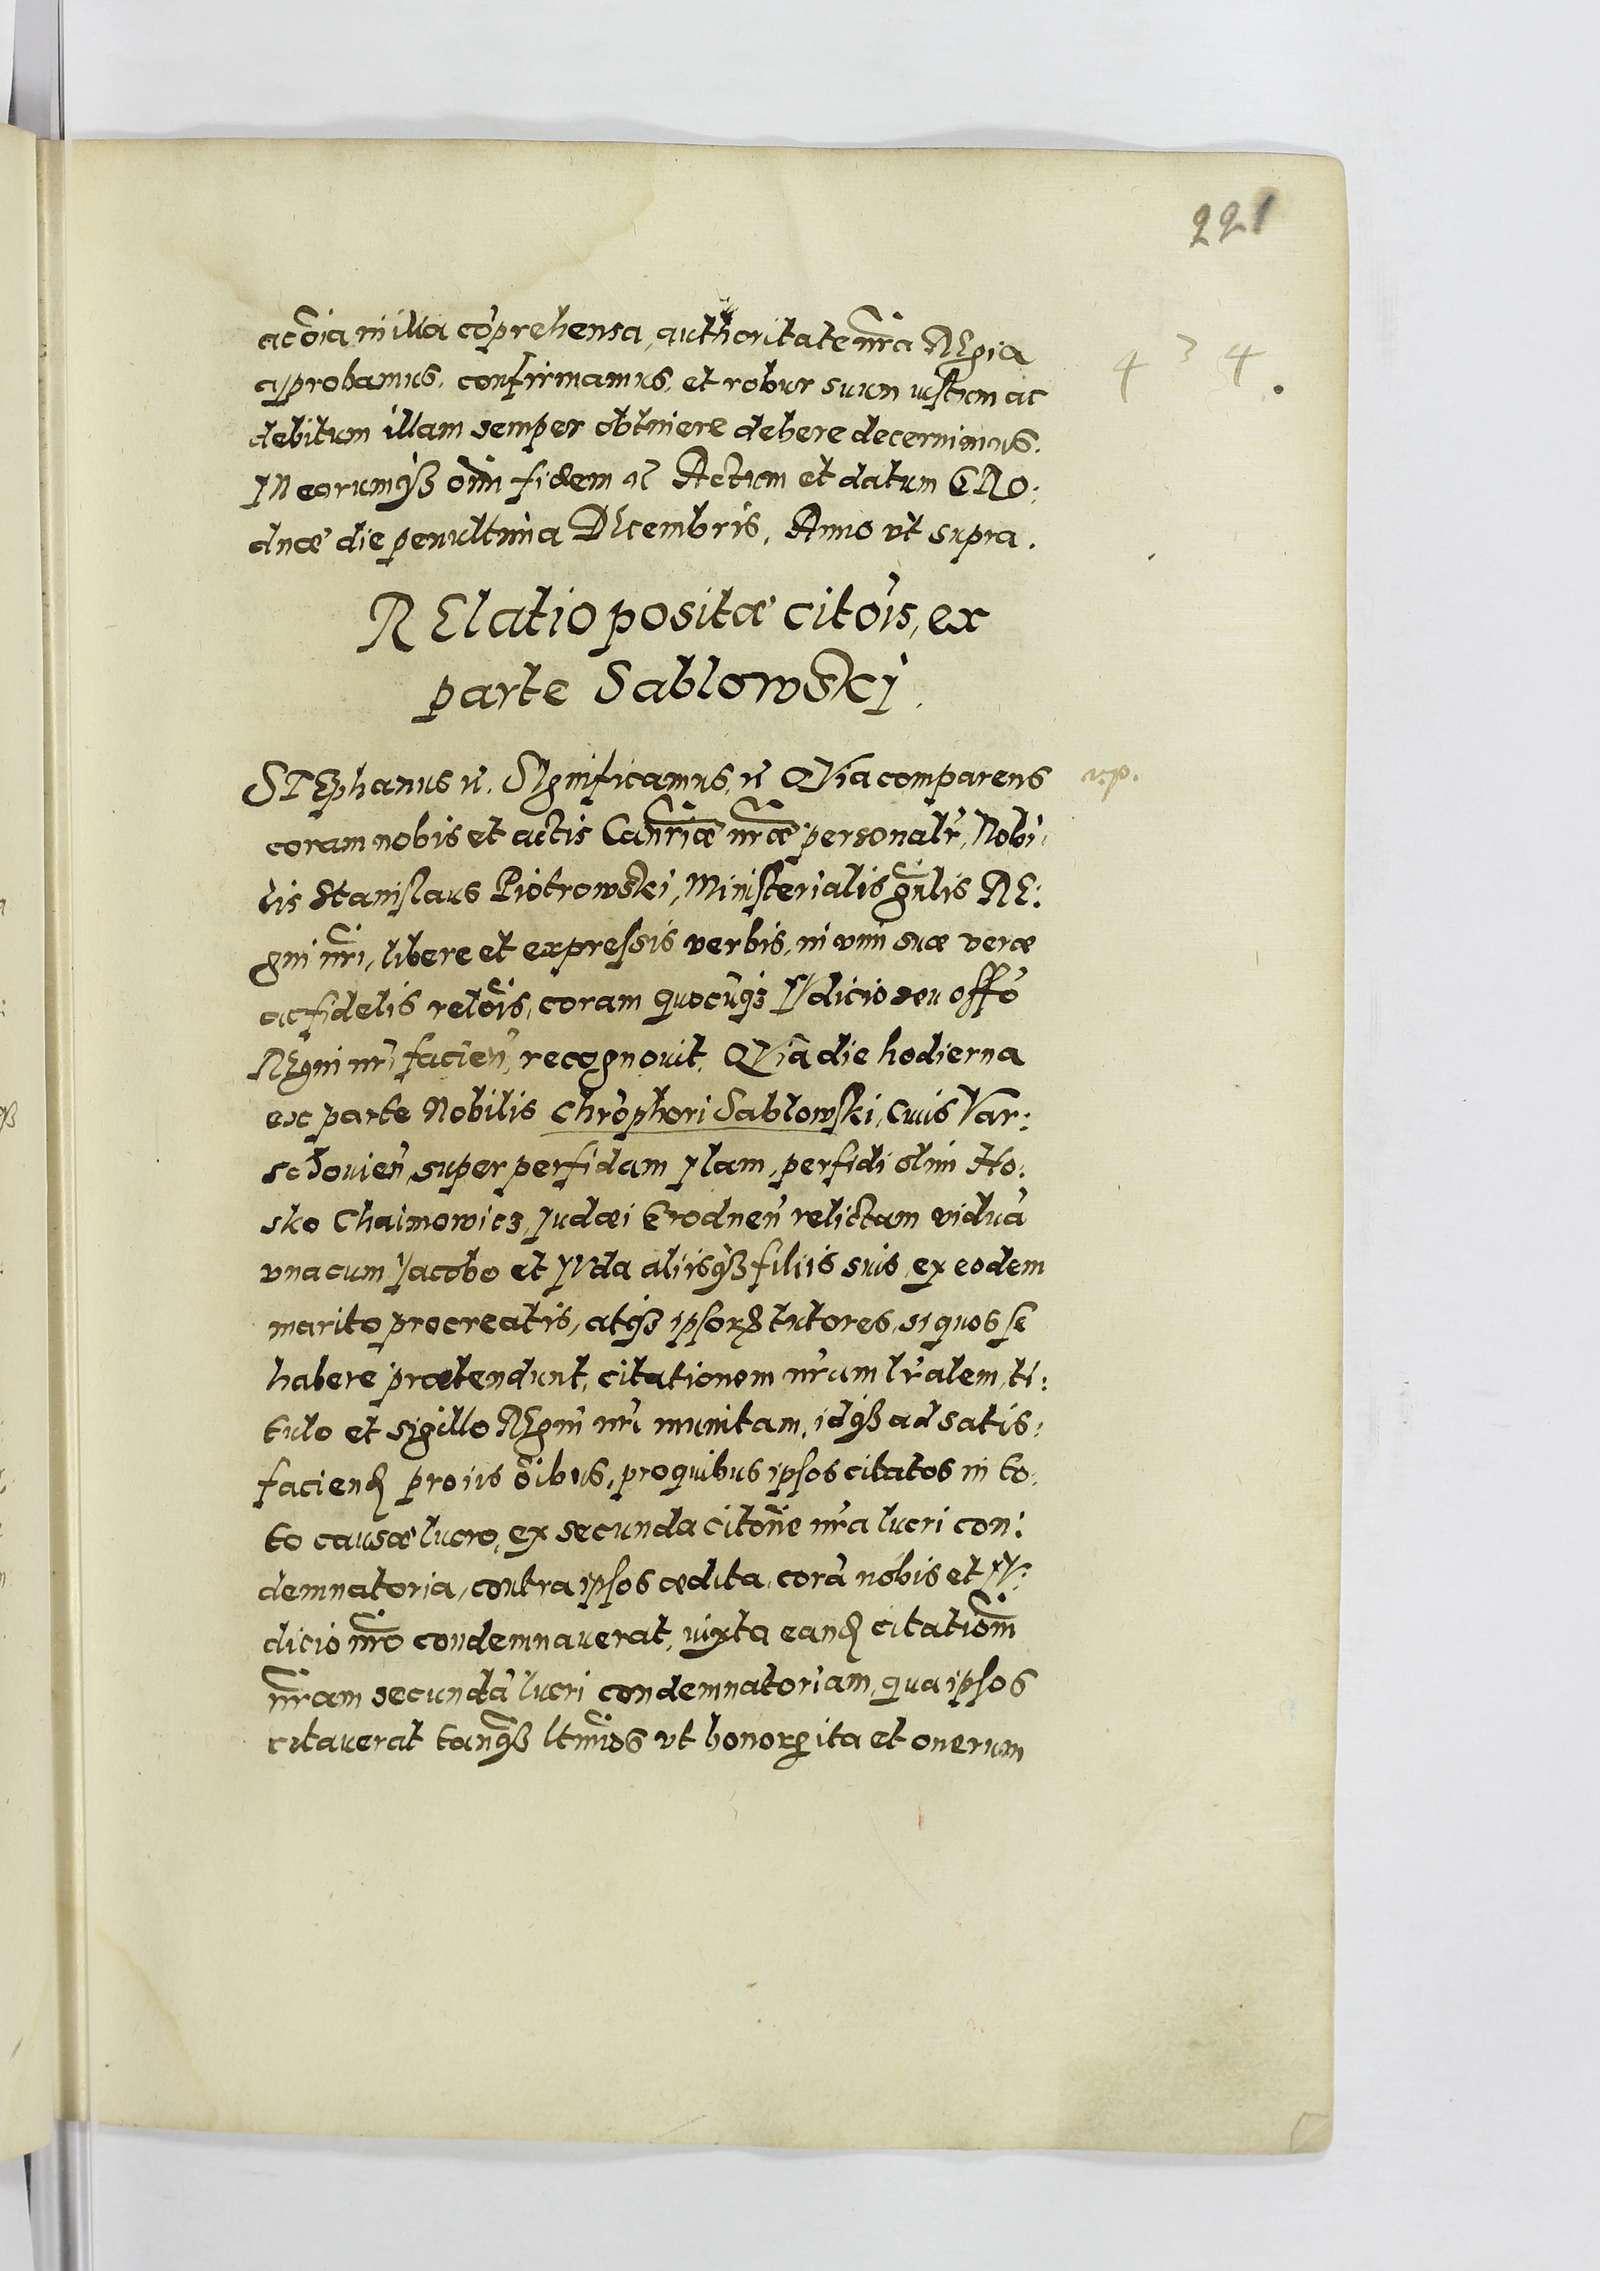 221
ac õia in illa cõprehensa, authoritate nr̃a REgia
approbamus, confirmamus, et robur suum iustum ac
debitum illam semper obtinere debere decernimus.
IN eorumqꝫ om̃ fidem ꝛc Actum et datum GRO:
dnæ die penultima DEcembris, Anno vt supra.
RElatio positæ citõis, ex
parte Sablowskj.
STEphanus ꝛc. SIgnificamus, ꝛc QVia comparens
v.p.
coram nobis et actis Canr̃iæ nr̃æ personalr̃, Nobi:
lis Stanislaus Piotrowskj, Ministerialis gñlis RE:
gni nr̃i, libere et expressis verbis, in vim suæ veræ
ac fidelis relõis, coram quocũqꝫ IVdicio seu offõ
REgni nr̃i facieñ, recognovit, QVia die hodierna
ex parte Nobilis Chrõphori Sablowski, Civis Var:
schovieñ, super perfidam Ilam, perfidi olim Ho:
sko Chaimowicz, Iudæi Grodneñ relictam viduã
vna cum Iacobo et IVda aliisqꝫ filiis suis, ex eodem
marito procreatis, atqꝫ ipsorꝝ tutores, si quos se
habere prætendunt, citationem nr̃am lr̃alem, ti:
tulo et sigillo REgni nr̃i munitam, idqꝫ ad satis:
faciend̃ pro iis õibus, pro quibus ipsos citatos in to:
to causæ lucro, ex secunda citõne nr̃a lucri con:
demnatoria, contra ipsos ædita, corã nobis et IV:
dicio nr̃o condemnaverat, iuxta eand̃ citatiõm
nr̃am secundã lucri condemnatoriam, qua ipsos
citaverat tanqꝫ ltm̃os vt honorꝝ ita et onerum